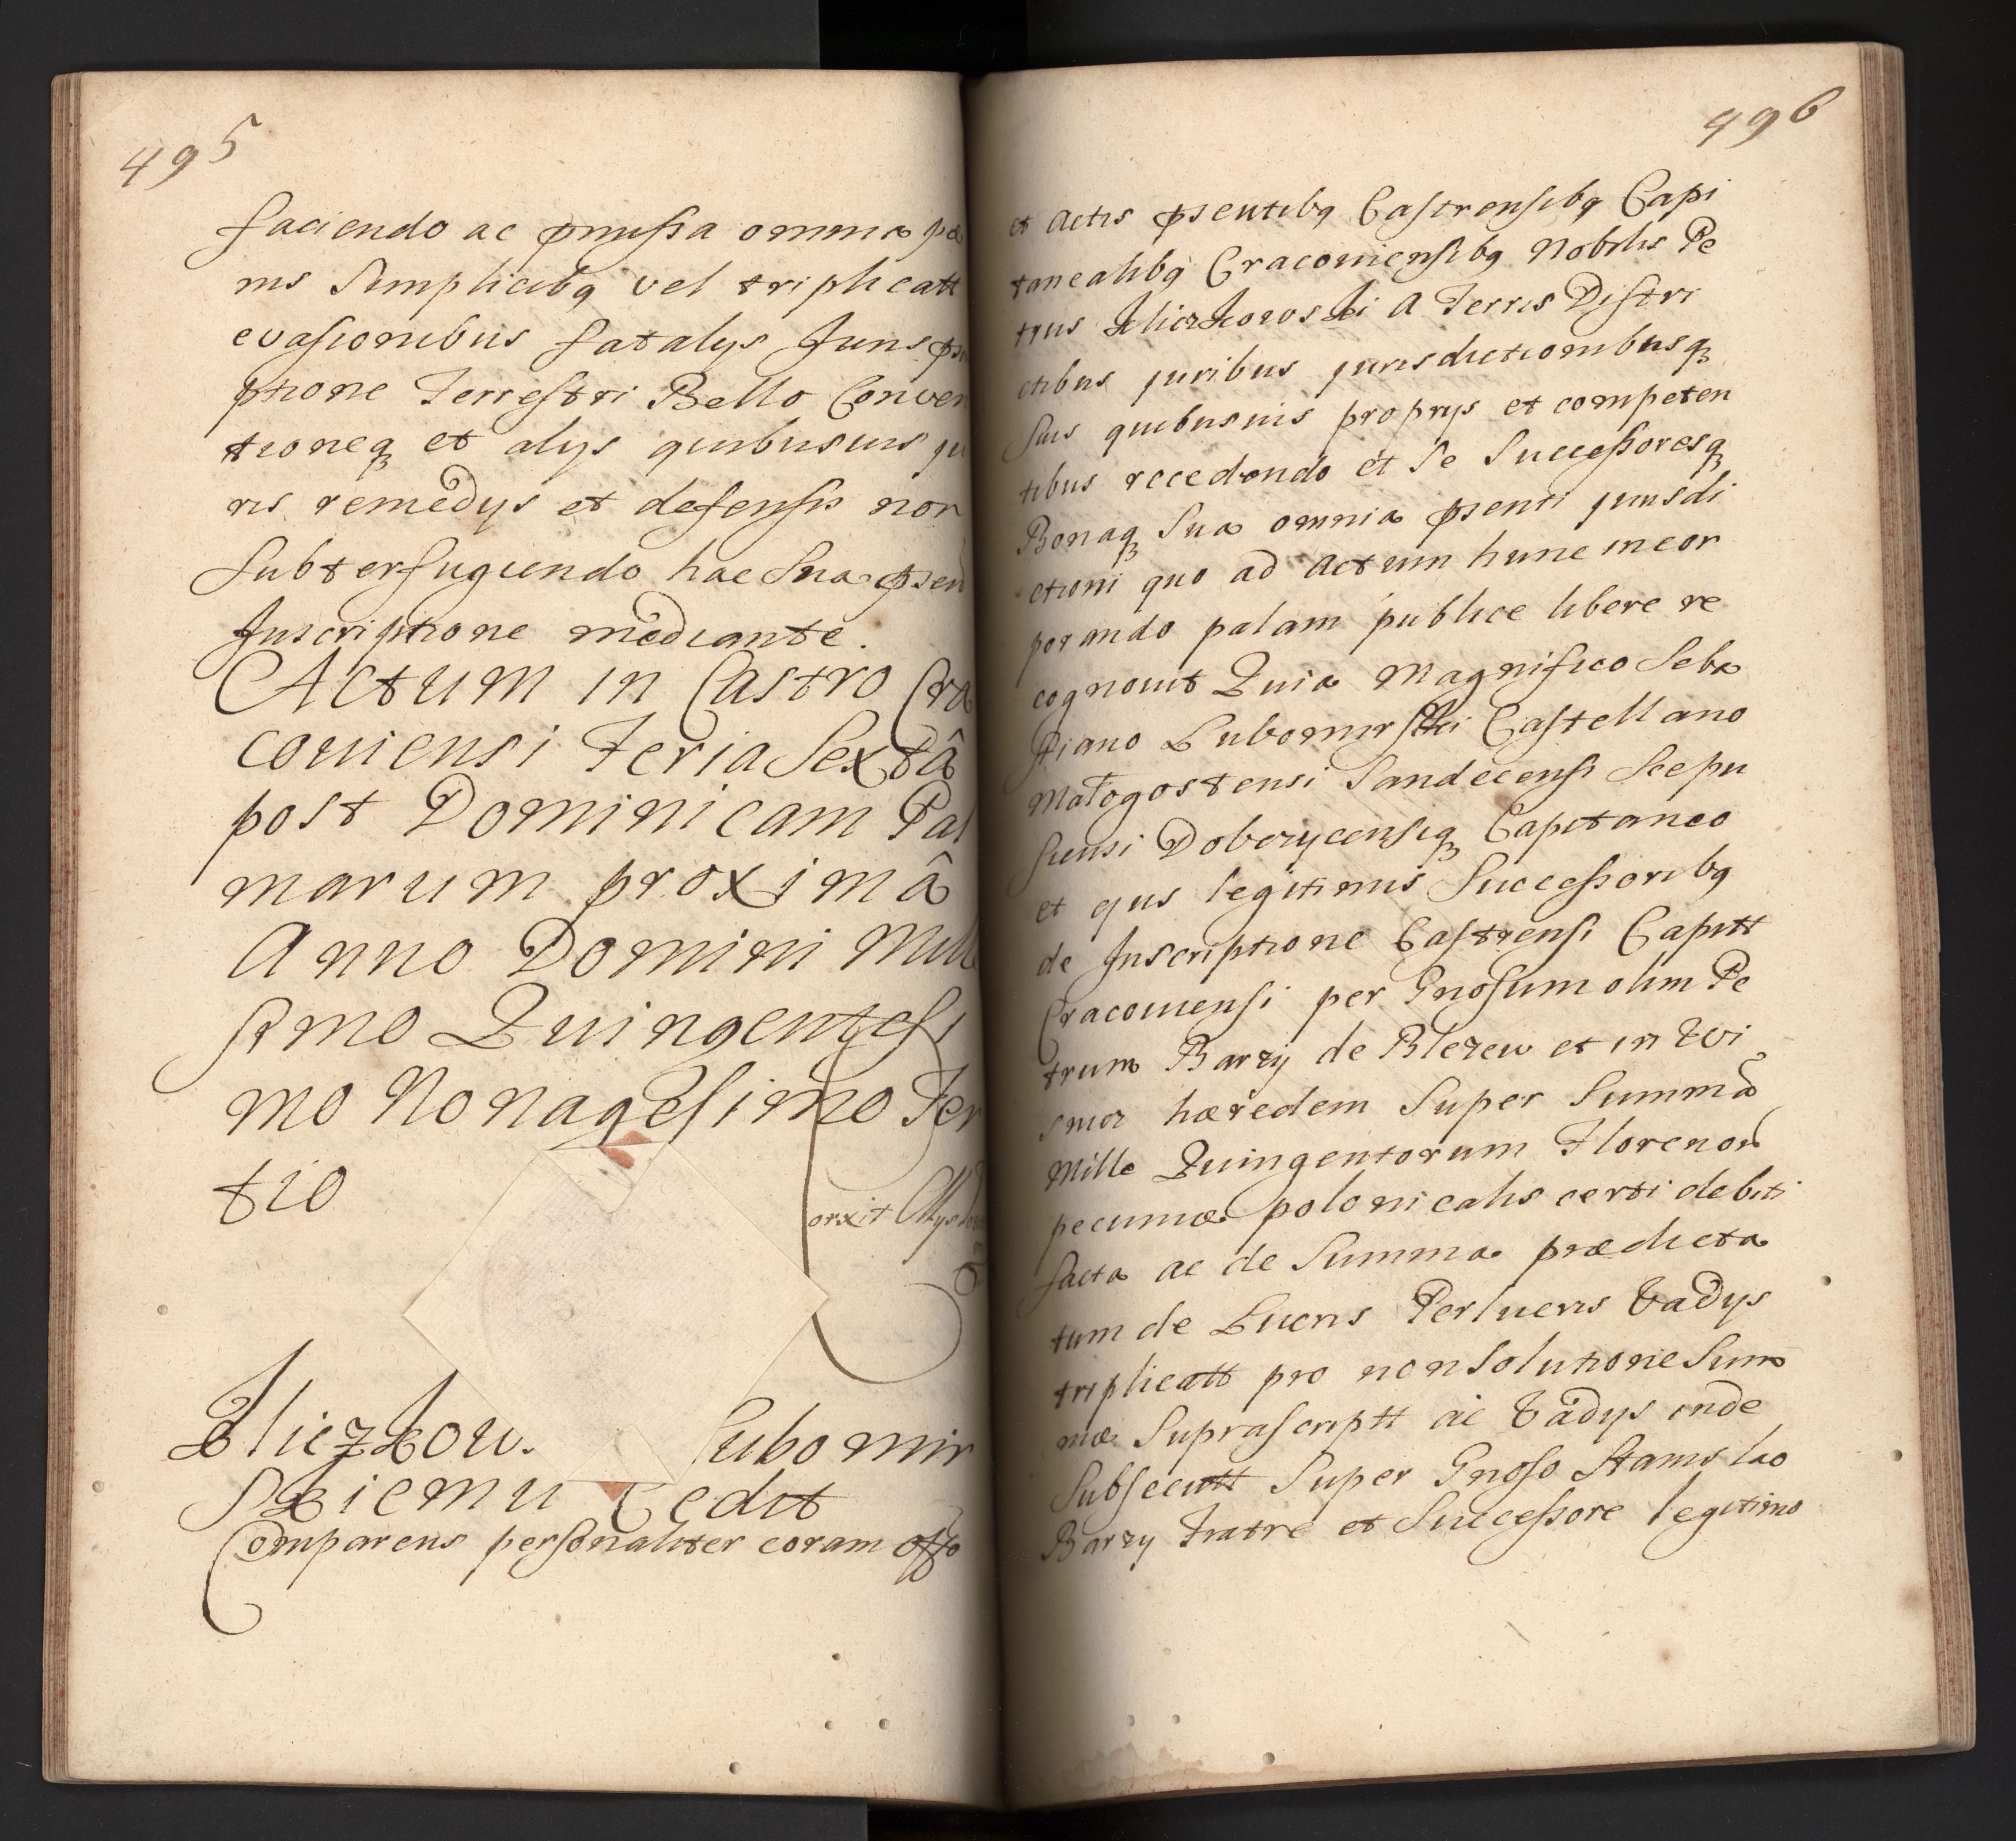 495
faciendo ac pmissa omnia pœ
nis Simplicibq vel triplicatt
evasionibus fatalys Juris pscri
ptione Terrestri Bello Conven
tioneq et alys quibusuis ju
ris remedys et defensis non
Subterfugiendo hac Sua psenti
Inscriptione mediante.
Actum in Castro Cra
couiensi Feria Sexta
post Dominicam Pal
marum proximâ
Anno Domini Mille
simo Quingentesi
mo Nonagesimo Ter
tio
orxit
Kliczkow. Lubomir
Skiemu Cedit
Comparens personaliter coram offo
496
et Actis psentibq Castrensibq Capi
tanealibq Cracouiensibq Nobilis Pe
trus Kliczkowski A Terris Distri
ctibus juribus jurisdictionibusq
Suis quibusuis proprys et competen
tibus recedendo et Se Successoresq
Bonaq Sua omnia psenti jurisdi
ctioni quo ad Actum hunc incor
porando palam publice libere re
cognouit Quia Magnifico Seba
stiano Lubomirski Castellano
Małogostensi Sandecensi Scepu
siensi Dobczycensiq Capitaneo
et ejus legitimis Successoribq
de Inscriptione Castrensi Capitt
Cracouiensi per Gnosum olim Pe
trum Barzy de Blezew et in Wi
smicz hæredem Super Summa
Mille Quingentorum Florenor
pecuniæ polonicalis certi debiti
facta ac de Summa prædicta
tum de Lucris Perlucris Vadys
triplicatt pro non Solutione Sum
mæ Suprascriptt ac Vadys inde
Subsecutt Super Gnoso Stanislao
Barzy Fratre et Successore legitimo